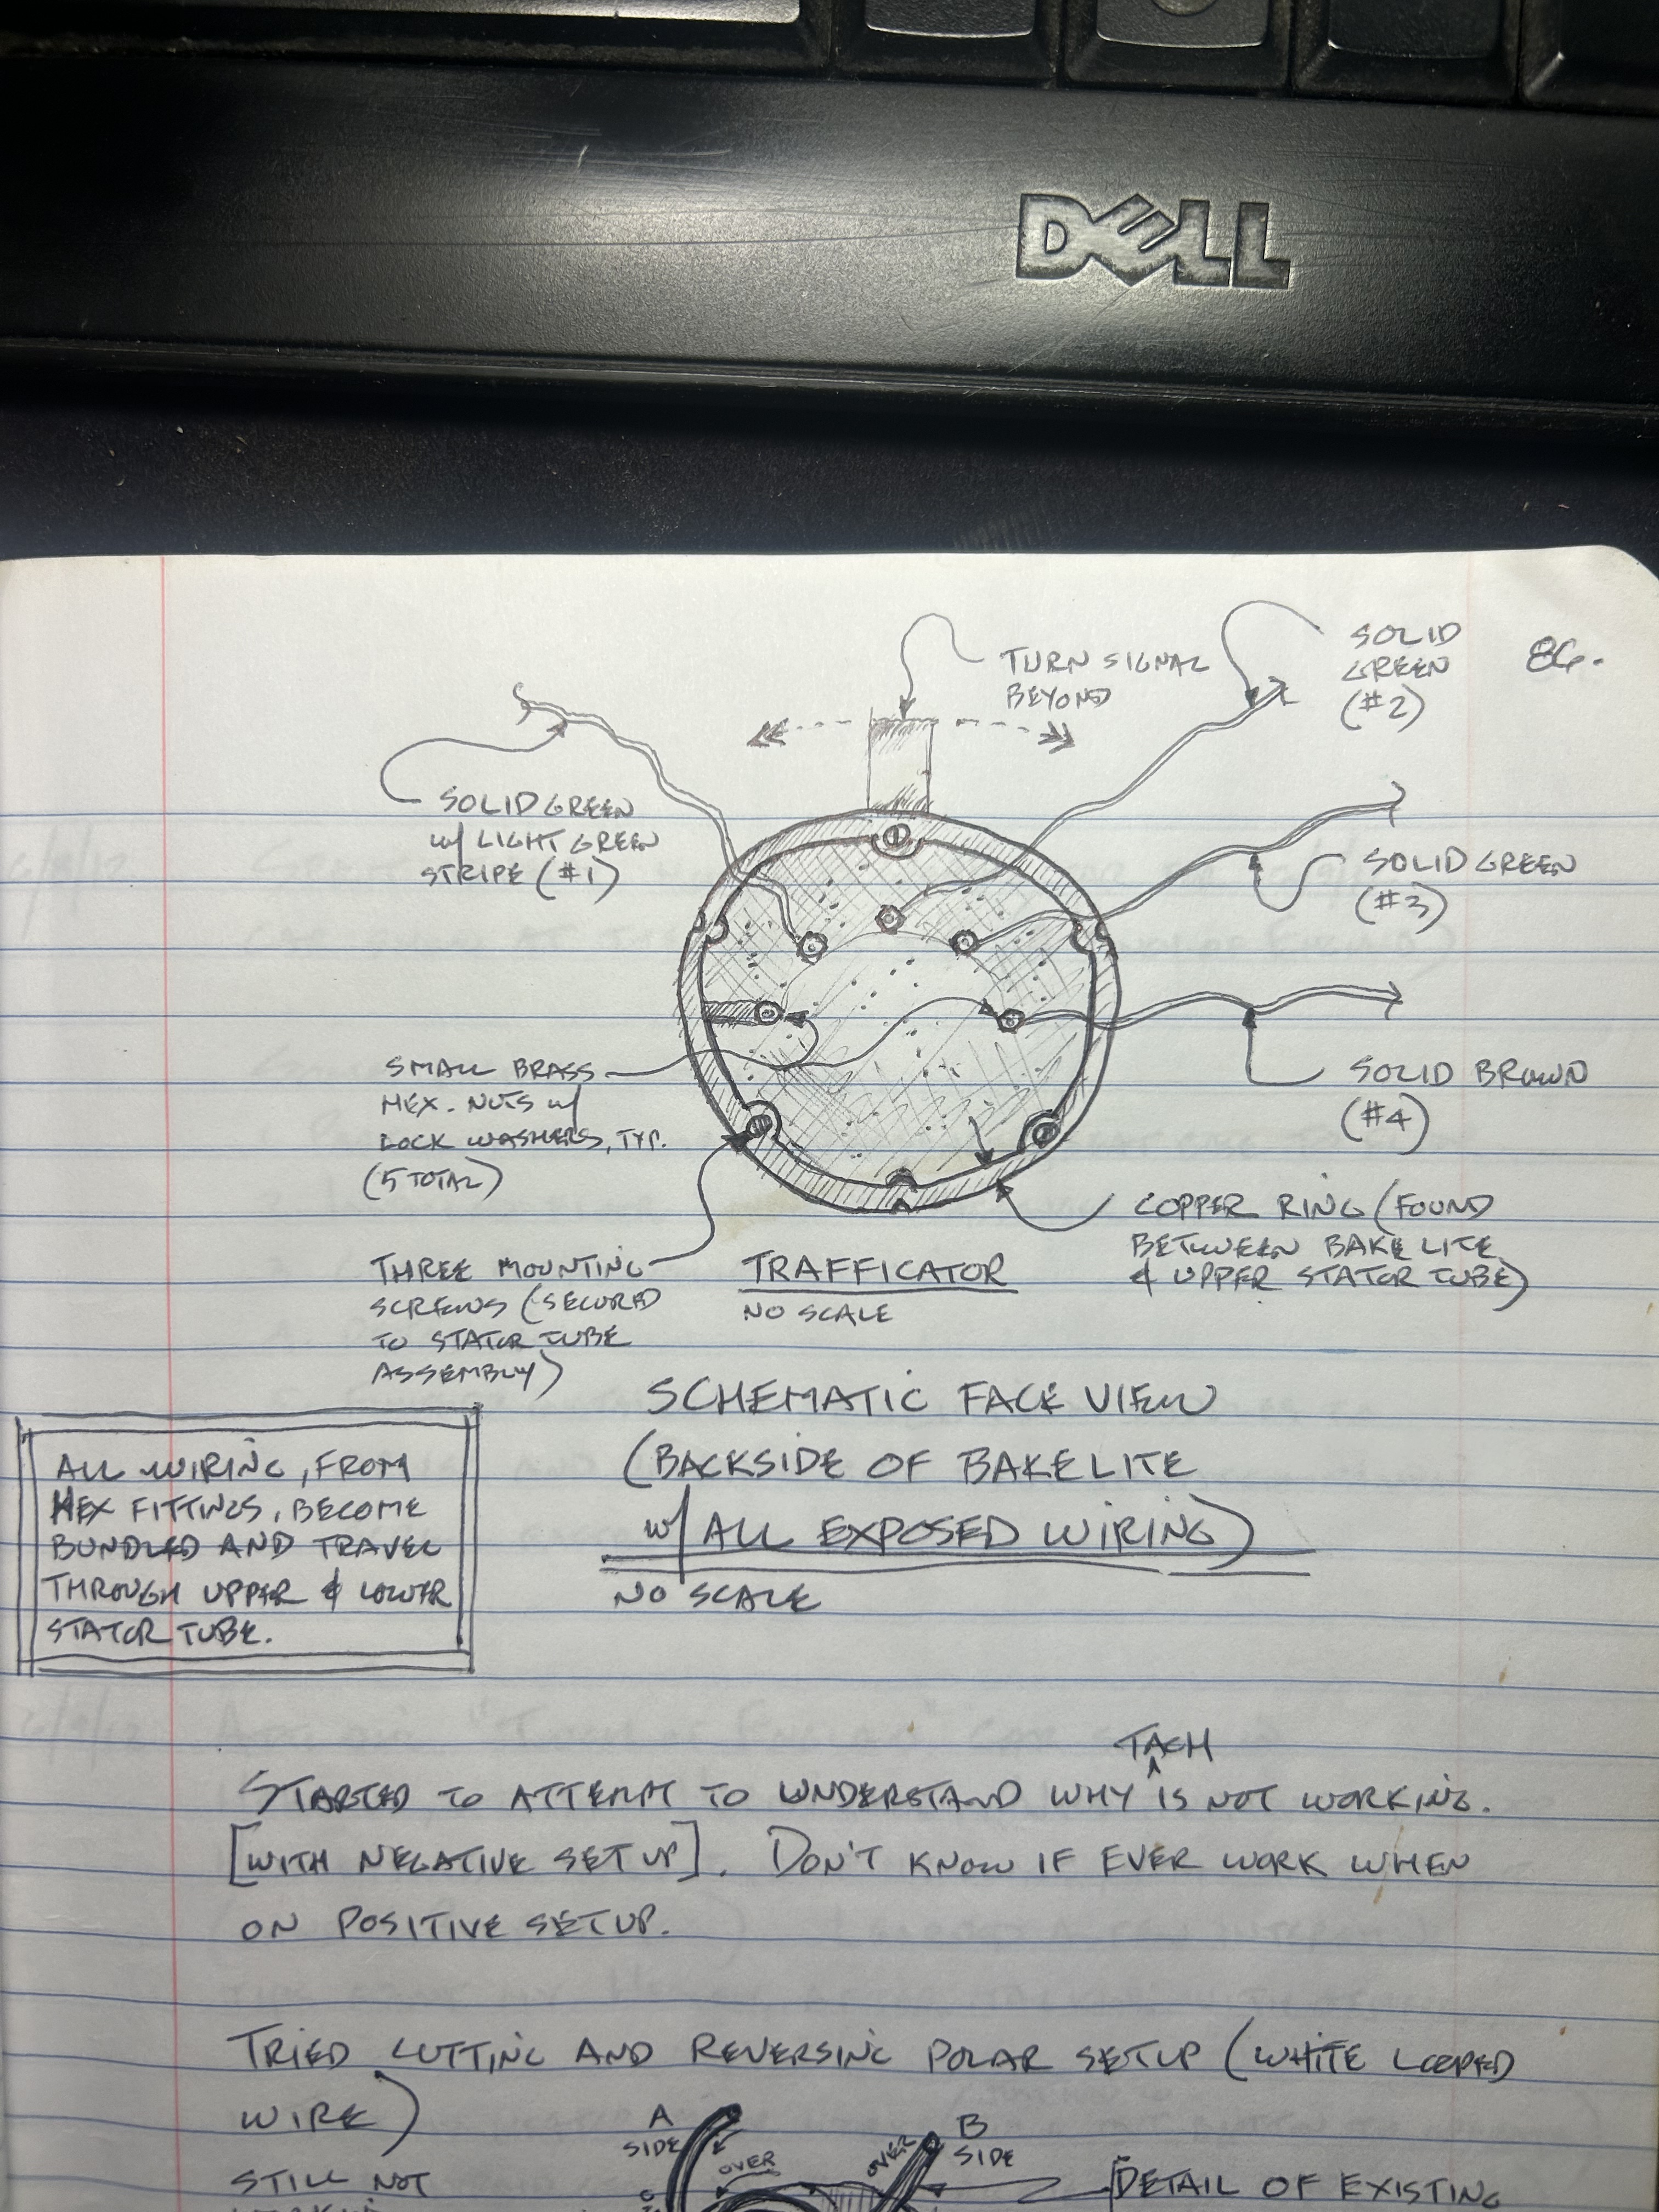 DELL
86.
TURN SIGNAL
BEYOND
SOLID
GREEN
(#2)
SOLID GREEN
w/ LIGHT GREEN
STRIPE (#1)
SOLID GREEN
(#3)
SMALL BRASS
HEX. NUTS w/
LOCK WASHERS, TYP.
(5 TOTAL)
SOLID BROWN
(#4)
THREE MOUNTING
SCREWS (SECURED
TO STATOR TUBE
ASSEMBLY)
TRAFFICATOR
NO SCALE
COPPER RING (FOUND
BETWEEN BAKELITE
& UPPER STATOR TUBE)
SCHEMATIC FACE VIEW
(BACKSIDE OF BAKELITE
w/ ALL EXPOSED WIRING)
NO SCALE
ALL WIRING, FROM
HEX FITTINGS, BECOME
BUNDLED AND TRAVEL
THROUGH UPPER & LOWER
STATOR TUBE.
TACH
STARTED TO ATTEMPT TO UNDERSTAND WHY ^ IS NOT WORKING.
[WITH NEGATIVE SET UP]. DON'T KNOW IF EVER WORK WHEN
ON POSITIVE SETUP.
TRIED CUTTING AND REVERSING POLAR SETUP (WHITE LOOPED
WIRE)
A
SIDE
OVER
OVER
B
SIDE
STILL NOT
DETAIL OF EXISTING